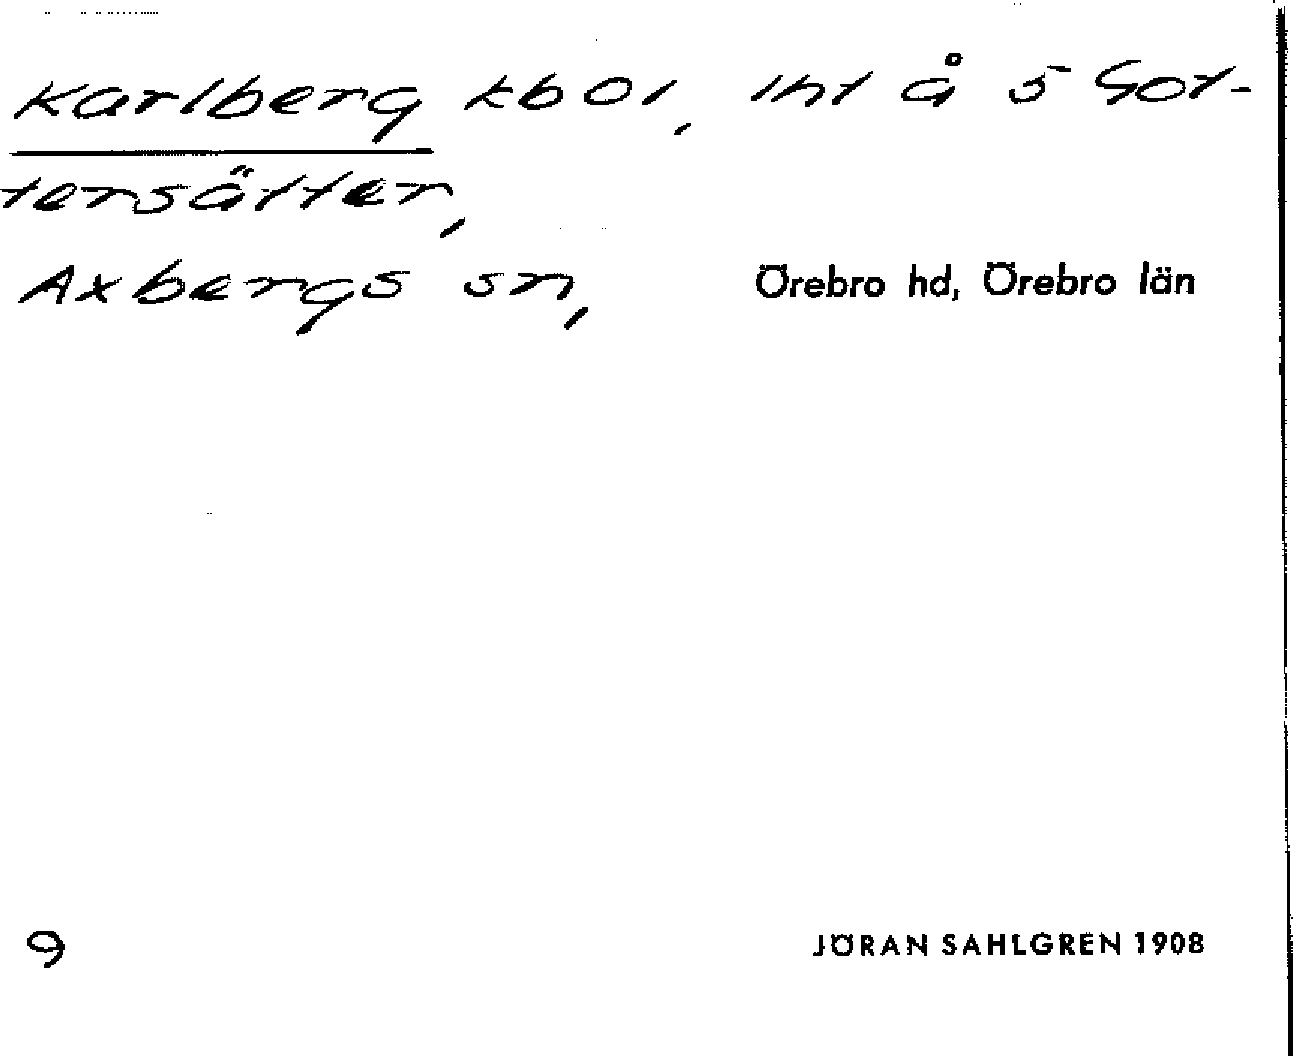 Karlberg kbol, int å 5 Got-
tersätter,
Axbergs sn, Örebro hd, Örebro län
9 JÖRAN SAHLGREN 1908